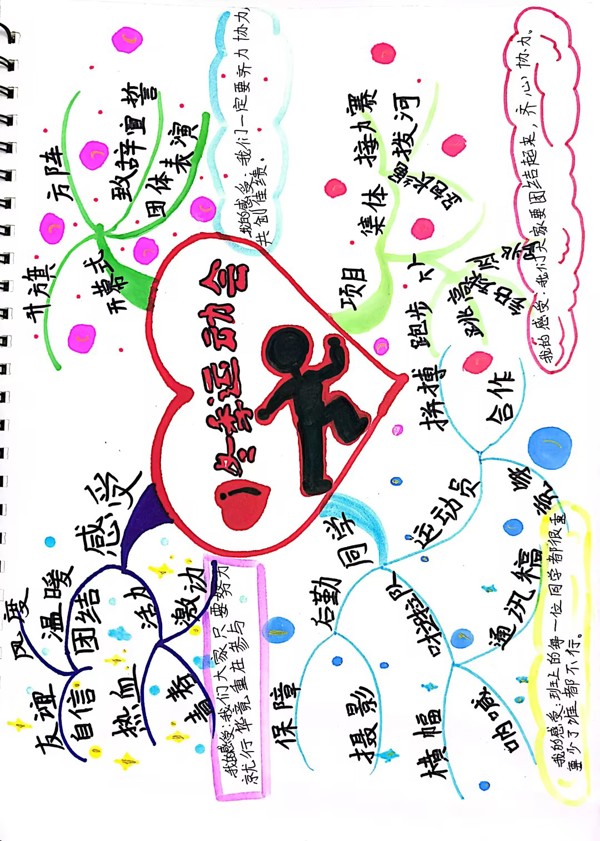 冬季运动会
开幕式
升方旗
方阵
致辞宣誓
团体表演
我的感受：我们一定要齐力协力，
共创佳绩。
项目
集体
接力赛
拨河
个人
跑步
跳高
我的感受：我们大家要团结起来，齐心协力。
同学
运动员
拼搏
合作
啦啦队
通讯稿
呐喊
横幅
后勤
保障
摄影
我的感受：班上的每一位同学都很重
要少了谁都不行。
感受
团结
风度
温暖
友谊
自信
活力
激动
热血
青春
我的感受：我们大家只要努力
就行毕竟重在参与